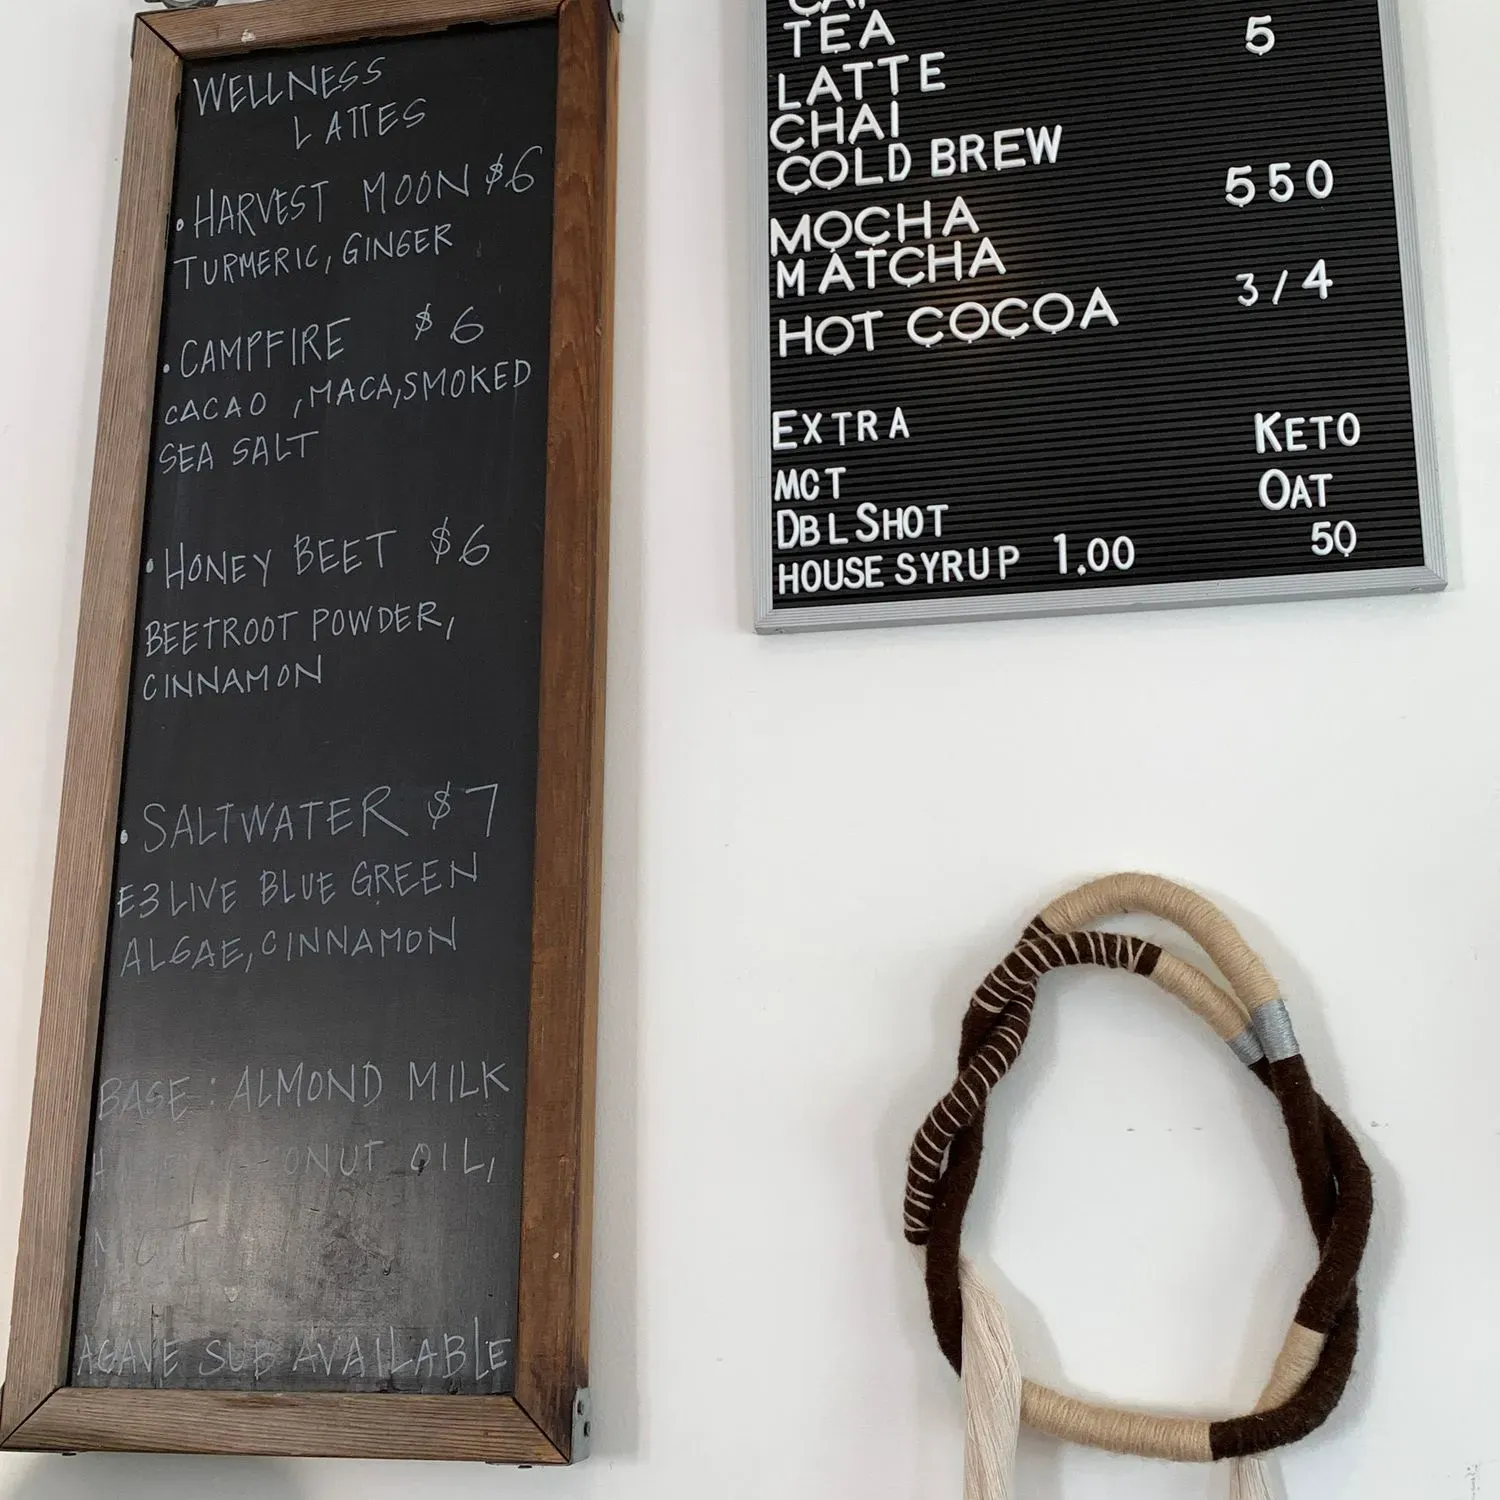 WELLNESS
LATTES
• HARVEST MOON $6
TURMERIC, GINGER
• CAMPFIRE $6
CACAO, MACA, SMOKED
SEA SALT
• HONEY BEET $6
BEETROOT POWDER,
CINNAMON
• SALTWATER $7
E3LIVE BLUE GREEN
ALGAE, CINNAMON
BASE: ALMOND MILK
OIL,
MCT
AGAVE SUB AVAILABLE
TEA 5
LATTE
CHAI
COLD BREW
MOCHA 550
MATCHA
HOT COCOA 3/4
EXTRA KETO
MCT OAT
DBL SHOT 50
HOUSE SYRUP 1.00